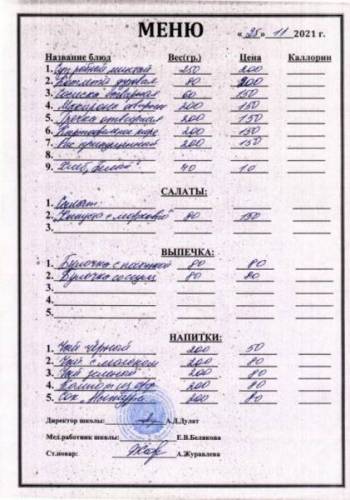 МЕНЮ «25» 11 2021 г.
Название блюд Вес(гр.) Цена Каллории
1. Суп рыбный 250 200
2. Котлета 80 200
3. Сосиска отварная 60 150
4. Макароны отварные 200 150
5. Гречка отварная 200 150
6. Картофельное пюре 200 150
7. Рис припущенный 200 150
8.
9. Хлеб, белый 40 10
САЛАТЫ:
1. Салат:
2. "Капуста с морковью" 80 150
3.
ВЫПЕЧКА:
1. Булочка с 80 80
2. Булочка 80 80
3.
4.
5.
НАПИТКИ:
1. Чай чёрный 200 50
2. Чай с молоком 200 80
3. Чай зелёный 200 80
4. Компот из 200 80
5. Сок 200 80
Директор школы: А.Д.Дулат
Мед.работник школы: Е.В.Белякова
Ст.повар: А.Журавлева